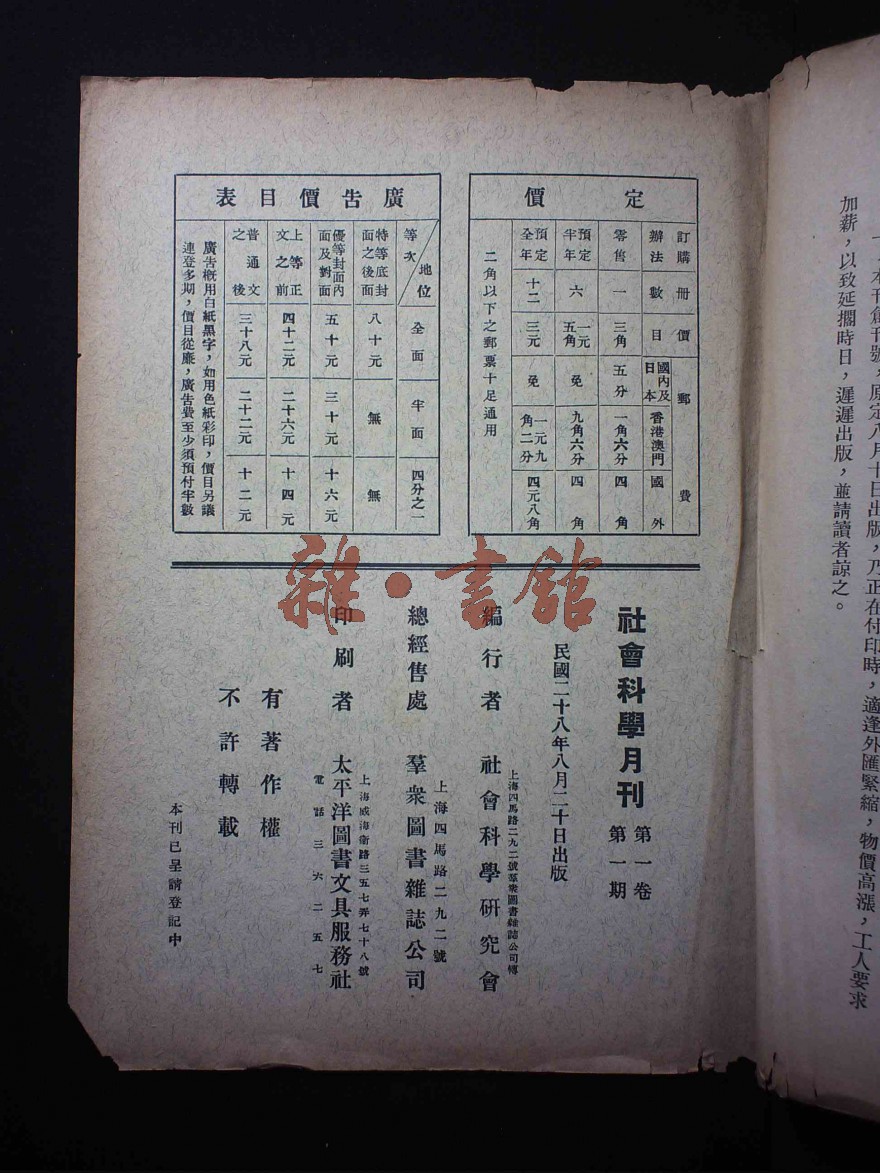 一、本刊創刊號，原定八月十日出版，乃正在付印時，適逢外匯緊縮，物價高漲，工人要求
加薪，以致延擱時日，遲遲出版，並請讀者諒之。
定價
訂購辦法 冊數 價目 郵費
國內及日本 香港澳門 國外
零售 一 三角 五分 一角六分 四角
預定半年 六 一元五角 免 九角六分 四角
預定全年 十二 三元 免 一元九角二分 四元八角
二角以下之郵票十足通用
廣告價目表
等次 地位 全面 半面 四分之一
特等底封面之後面 八十元 無 無
優等封面內面及對面 五十元 三十元 十六元
上等正文之前 四十二元 二十六元 十四元
普通文之後 三十八元 二十二元 十二元
廣告概用白紙黑字，如用色紙彩印，價目另議
連登多期，價目從廉，廣告費至少須預付半數
雜·書館
社會科學月刊 第一卷 第一期
民國二十八年八月二十日出版
上海四馬路二九二號羣衆圖書雜誌公司轉
編行者 社會科學研究會
上海四馬路二九二號
總經售處 羣衆圖書雜誌公司
上海威海衛路三五七弄七十八號
印刷者 太平洋圖書文具服務社
電話三六二五七
有著作權
不許轉載
本刊已呈請登記中